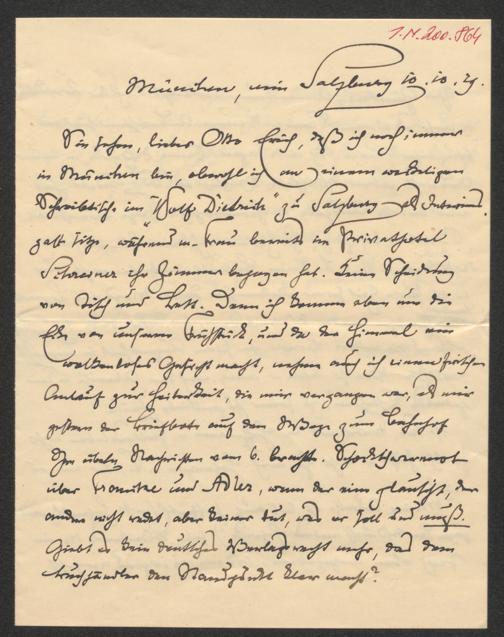 I.N. 200.864
München, nein Salzburg 10.10.29.
Sie sehen, lieber Otto Erich, daß ich noch immer
in München bin, obwohl ich an einem wackeligen
Schreibtische im "Wolf Dietrich" zu Salzburg als Interims-
gast sitze, während m. Frau bereits im Privathotel
ihr Zimmer bezogen hat. Keine Scheidung
von Tisch und Bett. Denn ich komme eben um die
Ecke von unserem Frühstück, und da der Himmel ein
wolkenloses Gesicht macht, nehme auch ich einen frischen
Anlauf zur Heiterkeit, die mir vergangen war, als mir
gestern der Briefbote auf dem Wege zum Bahnhof
Ihre übeln Nachrichten vom 6. brachte. Schockschwerenot
über und Adler, wenn der eine, der
andre nicht redet, aber keiner tut, was er soll und muß.
Giebt es kein deutsches Verlagsrecht mehr, das dem
Treuhändler den Standpunkt klar macht?